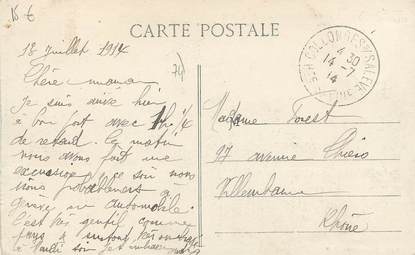 15 €
CARTE POSTALE
18 juillet 1914
74
Chère maman
Je suis arrivé hier
à bon port avec 1h 1/4
de retard. Ce matin
nous avons fait une
excursion ce soir nous
irons probablement à
en automobile.
C'est très gentil comme
pays
COLLONGES s/ SALEVE
4 30
14 -7
14
Madame Forest
97 avenue
Villeurbanne
Rhône